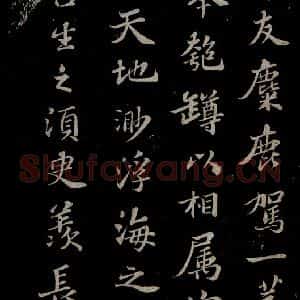 友麋鹿駕一
匏罇以相属
天地渺浮海之
生之須臾羨長
Shufawang.CN